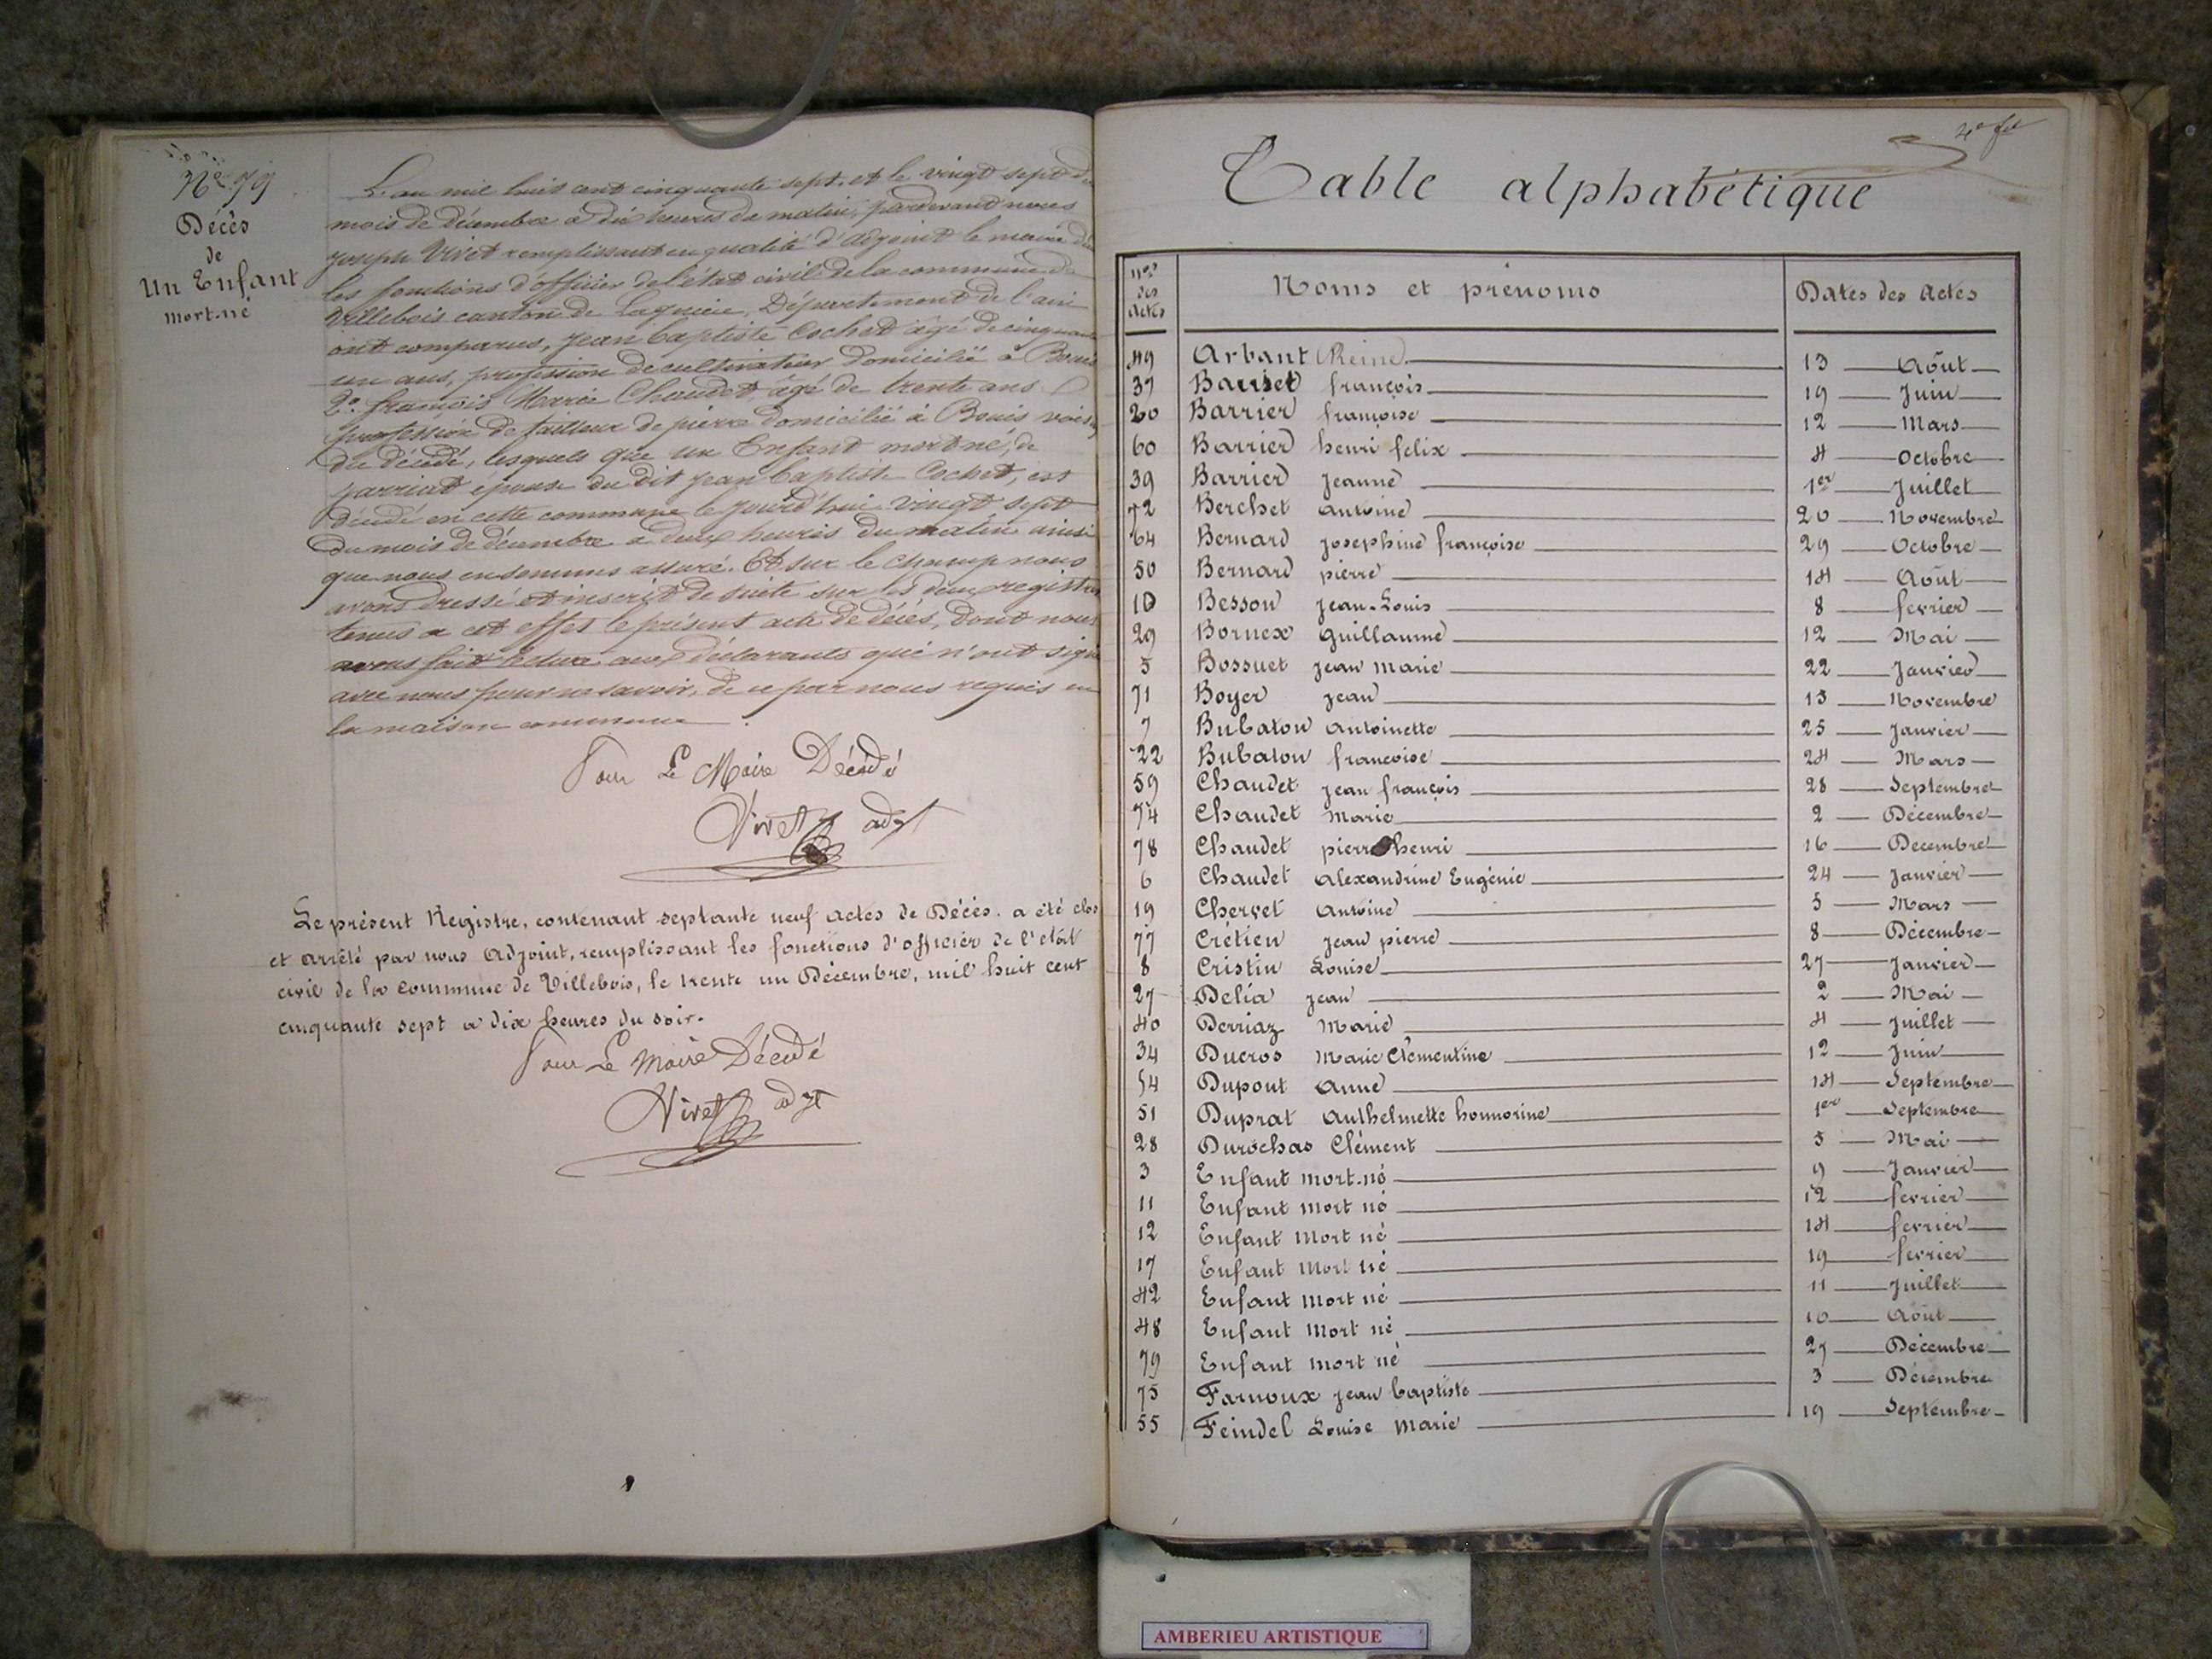 N.º 79
Décès
de
Un Enfant
mort-né
L'an mil huit cent cinquante sept, et le vingt sept du
mois de décembre à dix heures du matin, pardevant nous
joseph Vivet remplissant en qualité d'adjoint le maire
les fonctions d'officier de l'état civil de la commune de
Villebois canton de Lagnieu, Département de l'ain
ont comparus, jean baptiste Cochet âgé de cinquante
un ans, profession de cultivateur domicilié à Bouis
2.º françois Marie Chaudet, âgé de trente ans
profession de tailleur de pierre domicilié à Bouis voisin
du décédé, lesquels que un Enfant mort né, de
jarriat épouse du dit jean baptiste Cochet, est
décédé en cette commune le jourd'hui vingt sept
du mois de décembre à deux heures du matin ainsi
que nous en sommes assuré. Et sur le champ nous
avons dressé et inscrit de suite sur les deux registres
tenus a cet effet le présent acte de décès, dont nous
avons fait lecture aux déclarants qui n'ont signé
avec nous pour ne savoir, de ce par nous requis en
la maison commune.
Pour Le Maire Décédé
Vivet adjt
Le présent Registre, contenant septante neuf actes de Décès. a été clos
et arrêté par nous Adjoint, remplissant les fonctions d'officier de l'etat
civil de la commune de Villebois, le trente un Décembre, mil huit cent
cinquante sept a dix heures du soir.
Pour Le Maire Décédé
Vivet adjt
Table alphabétique
Nos des actes Noms et prénoms Dates des Actes
49 Arbant (Reine) 13 Août
37 Barriset françois 19 Juin
20 Barrier françoise 12 Mars
60 Barrier henri felix 4 Octobre
39 Barrier Jeanne 1er Juillet
72 Berchet antoine 20 Novembre
64 Bernard josephine françoise 29 Octobre
50 Bernard pierre 14 Août
10 Besson Jean-Louis 8 fevrier
29 Bornex Guillaume 12 Mai
5 Bossuet jean marie 22 Janvier
71 Boyer jean 13 Novembre
7 Bubaton Antoinette 25 Janvier
22 Bubaton francoise 24 Mars
59 Chaudet jean françois 28 Septembre
74 Chaudet Marie 2 Décembre
78 Chaudet pierre henri 16 Decembre
6 Chaudet Alexandrine Eugénie 24 Janvier
19 Chervet Antoine 5 Mars
77 Crétien Jean pierre 8 Décembre
8 Cristin Louise 27 Janvier
27 Delia jean 2 Mai
40 Derriaz Marie 4 Juillet
34 Ducros Marie Clémentine 12 Juin
54 Dupont Anne 14 Septembre
51 Duprat Anthelmette honnorine 1er Septembre
28 Durochas Clément 5 Mai
3 Enfant mort-né 9 Janvier
11 Enfant mort né 12 fevrier
12 Enfant Mort né 14 fevrier
17 Enfant Mort né 19 fevrier
42 Enfant Mort né 11 Juillet
48 Enfant Mort né 10 Août
79 Enfant mort né 27 Décembre
75 Farnoux jean baptiste 3 Décembre
55 Feindel Louise Marie 19 Septembre
AMBERIEU ARTISTIQUE